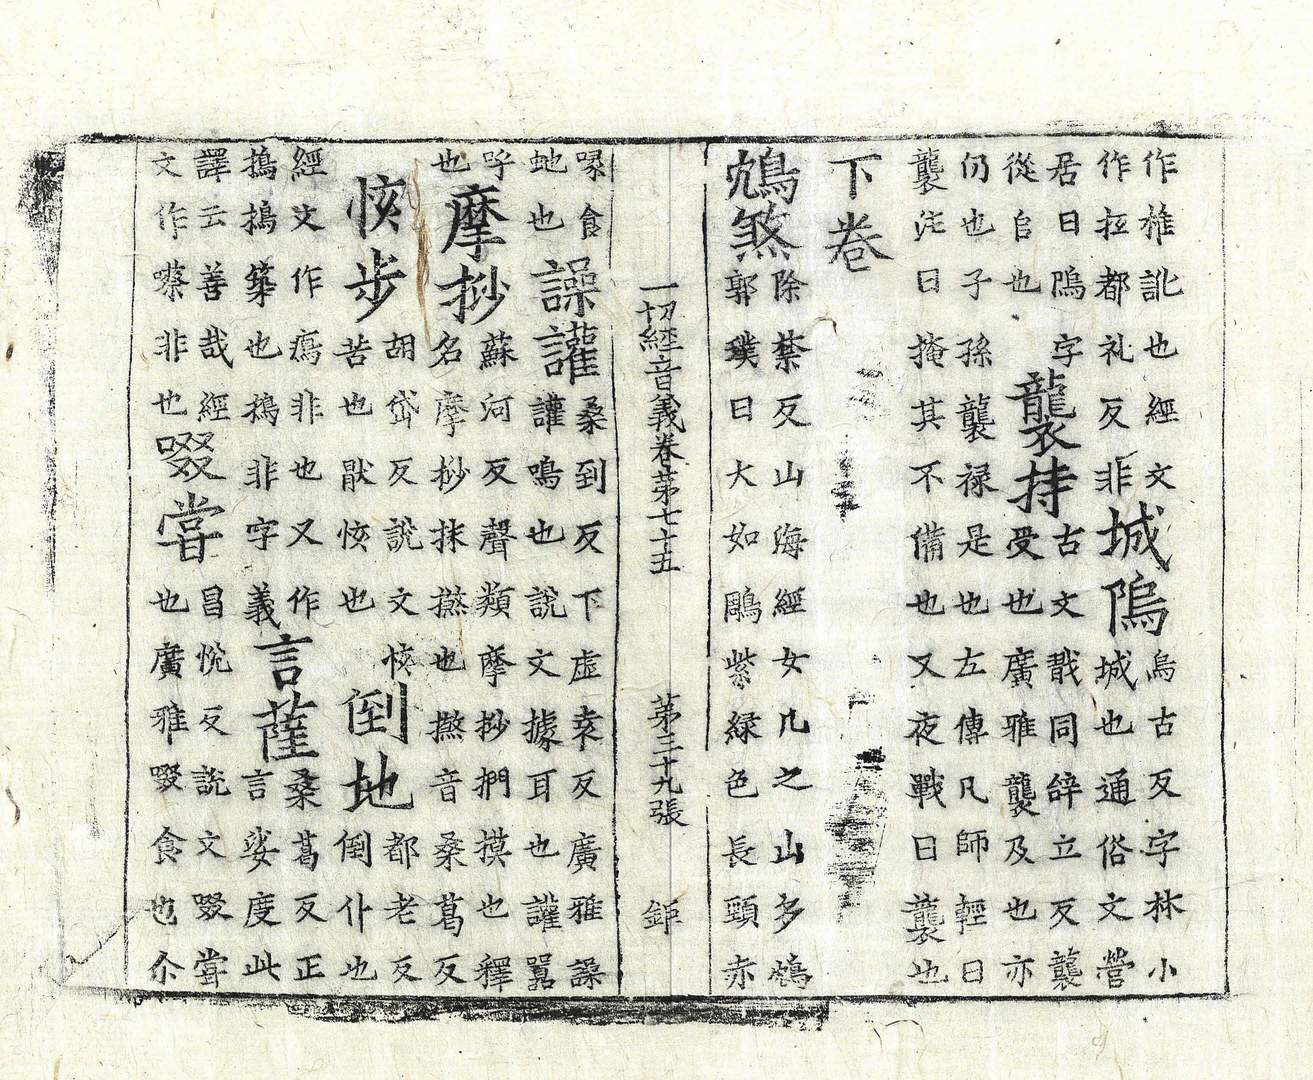 作榷訛也經文
作拡都礼反非
城隖
烏古反字林小
城也通俗文營
居曰隖字
從𠂤也
襲持
古文戠同辝立反襲
受也廣雅襲及也亦
仍也子孫襲禄是也左傳凡師輕曰
襲注曰掩其不備也又夜戰曰襲也
下卷
鴆煞
除禁反山海經女几之山多鴆
郭璞曰大如鵰紫緑色長頸赤
一切經音義卷第七十五 第三十九張 鉅
喙食
虵也
譟讙
桑到反下虛袁反廣雅譟
讙鳴也說文據耳也讙嚻
呼
也
摩抄
蘇河反聲類摩抄捫摸也釋
名摩抄抹摋也摋音桑葛反
恔步
胡岱反說文恔
苦也猒恔也
倒地
都老反
倒仆也
經文作㾭非也又作
擣擣築也擣非字義
言薩
桑葛反正
言娑度此
譯云善哉經
文作嚓非也
啜甞
昌悅反說文啜甞
也廣雅啜食也尒